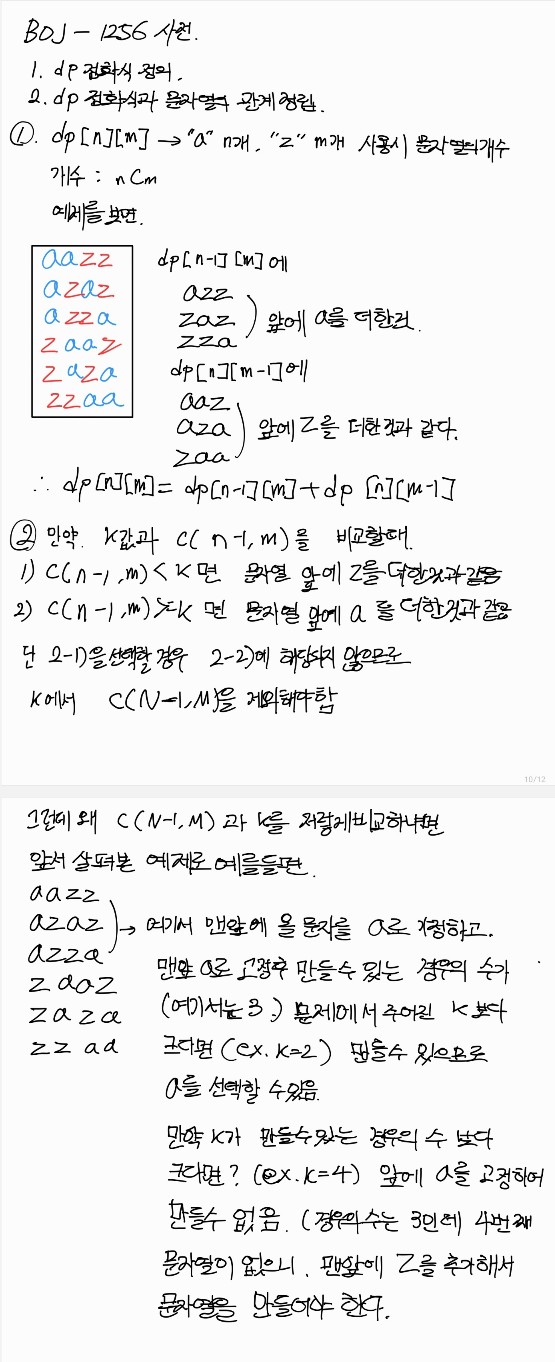 BOJ - 1256 사전.
1. dp 점화식 정의.
2. dp 점화식과 문자열의 관계 정립.
①. dp[n][m] → "a" n개, "z" m개 사용시 문자열의 개수
개수 : nCm
예제를 보면.
aazz
azaz
azza
zaaz
zaza
zzaa
dp[n-1][m]에
azz
zaz
zza
앞에 a를 더한것.
dp[n][m-1]에
aaz
aza
zaa
앞에 z를 더한것과 같다.
∴ dp[n][m] = dp[n-1][m] + dp [n][m-1]
② 만약. K값과 C(n-1, m)을 비교할때.
1) C(n-1, m) < K 면 문자열 앞에 z를 더한것과 같음
2) C(n-1, m) ≥ K 면 문자열 앞에 a를 더한것과 같음
단 2-1)을 선택할 경우 2-2)에 해당되지 않으므로
K에서 C(N-1, M)을 제외해야함
10/12
그런데 왜 C(N-1, M)과 K를 저렇게 비교하냐면
앞서 살펴본 예제로 예를들면.
aazz
azaz
azza
zaaz
zaza
zzaa
→ 여기서 맨앞에 올 문자를 a로 가정하고.
맨앞 a로 고정후 만들수 있는 경우의 수가
(여기서는 3.) 문제에서 주어진 K보다
크다면 (ex. K=2) 만들수 있으므로
a를 선택할 수 있음.
만약 K가 만들수있는 경우의 수 보다
크다면? (ex. K=4) 앞에 a를 고정하여
만들수 없음. (경우의수는 3인데 4번째
문자열이 없으니. 맨앞에 z를 추가해서
문자열을 만들어야 한다.